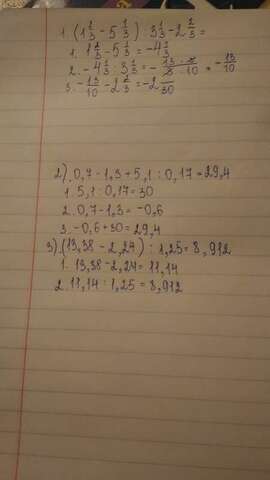 1. (1 2/3 - 5 1/3) : 3 1/3 - 2 2/3 =
1. 1 1/3 - 5 1/3 = -4 1/3
2. -4 1/3 : 3 1/3 = - 13 · 3 / 3 · 10 = - 13/10
3. - 13/10 - 2 2/3 = -2 /30
2) 0,7 - 1,3 + 5,1 : 0,17 = 29,4
1. 5,1 : 0,17 = 30
2. 0,7 - 1,3 = -0,6
3. -0,6 + 30 = 29,4
3) (13,38 - 2,24) : 1,25 = 8,912
1. 13,38 - 2,24 = 11,14
2. 11,14 : 1,25 = 8,912